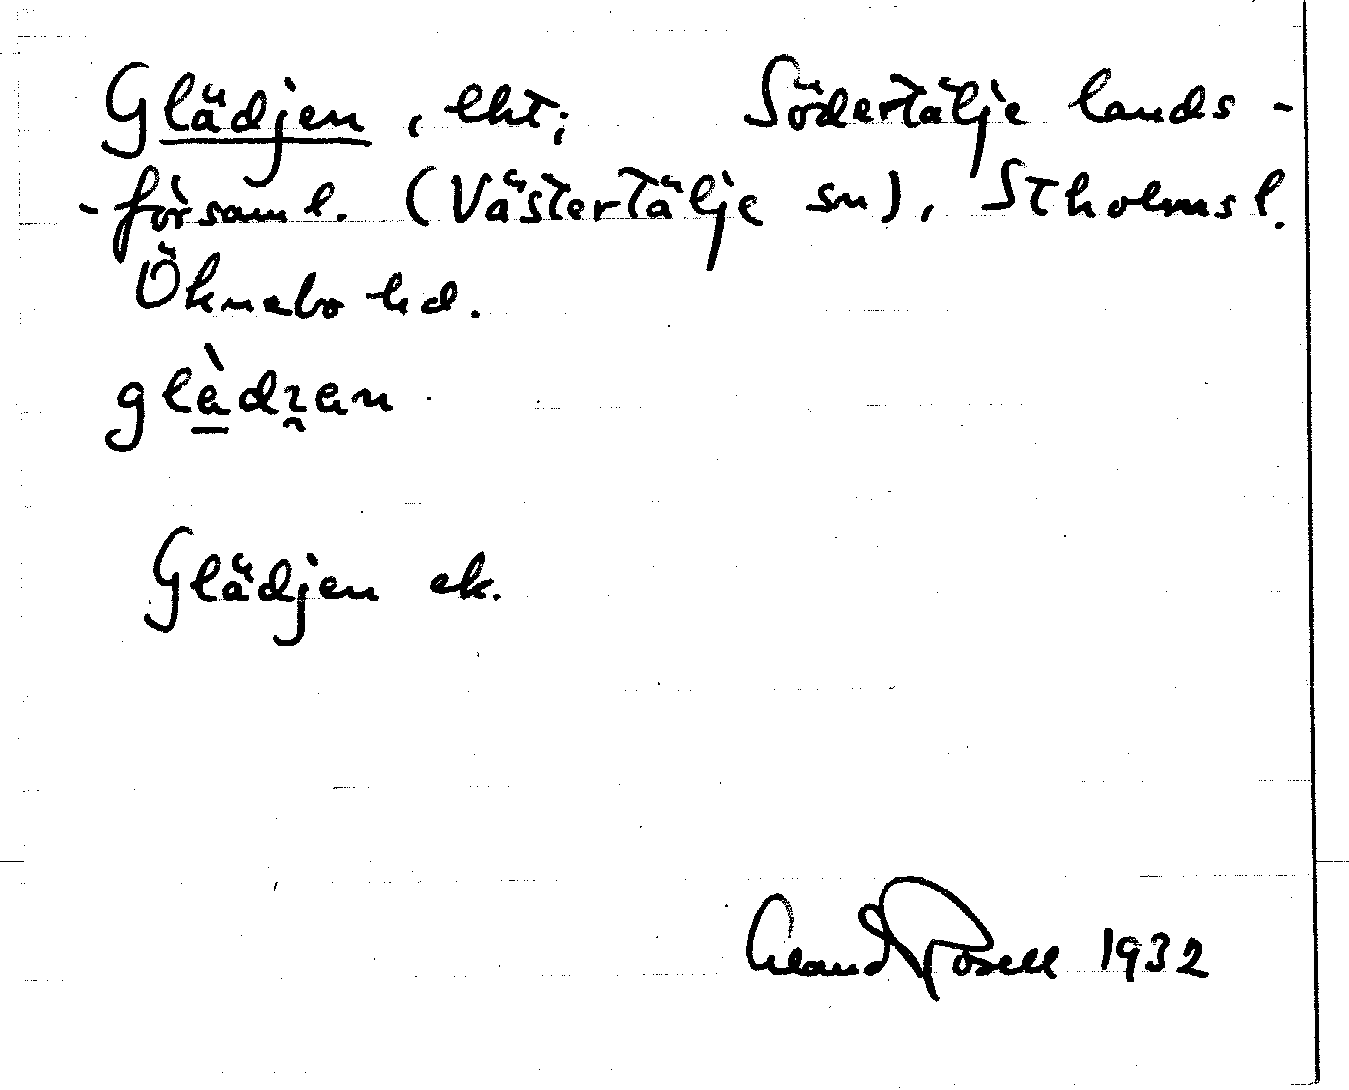 Glädjen, lht; Södertälje lands-
-församl. (Västertälje sn), Stholms l.
Öknebo hd.
glädjen ek.
Rosell 1932